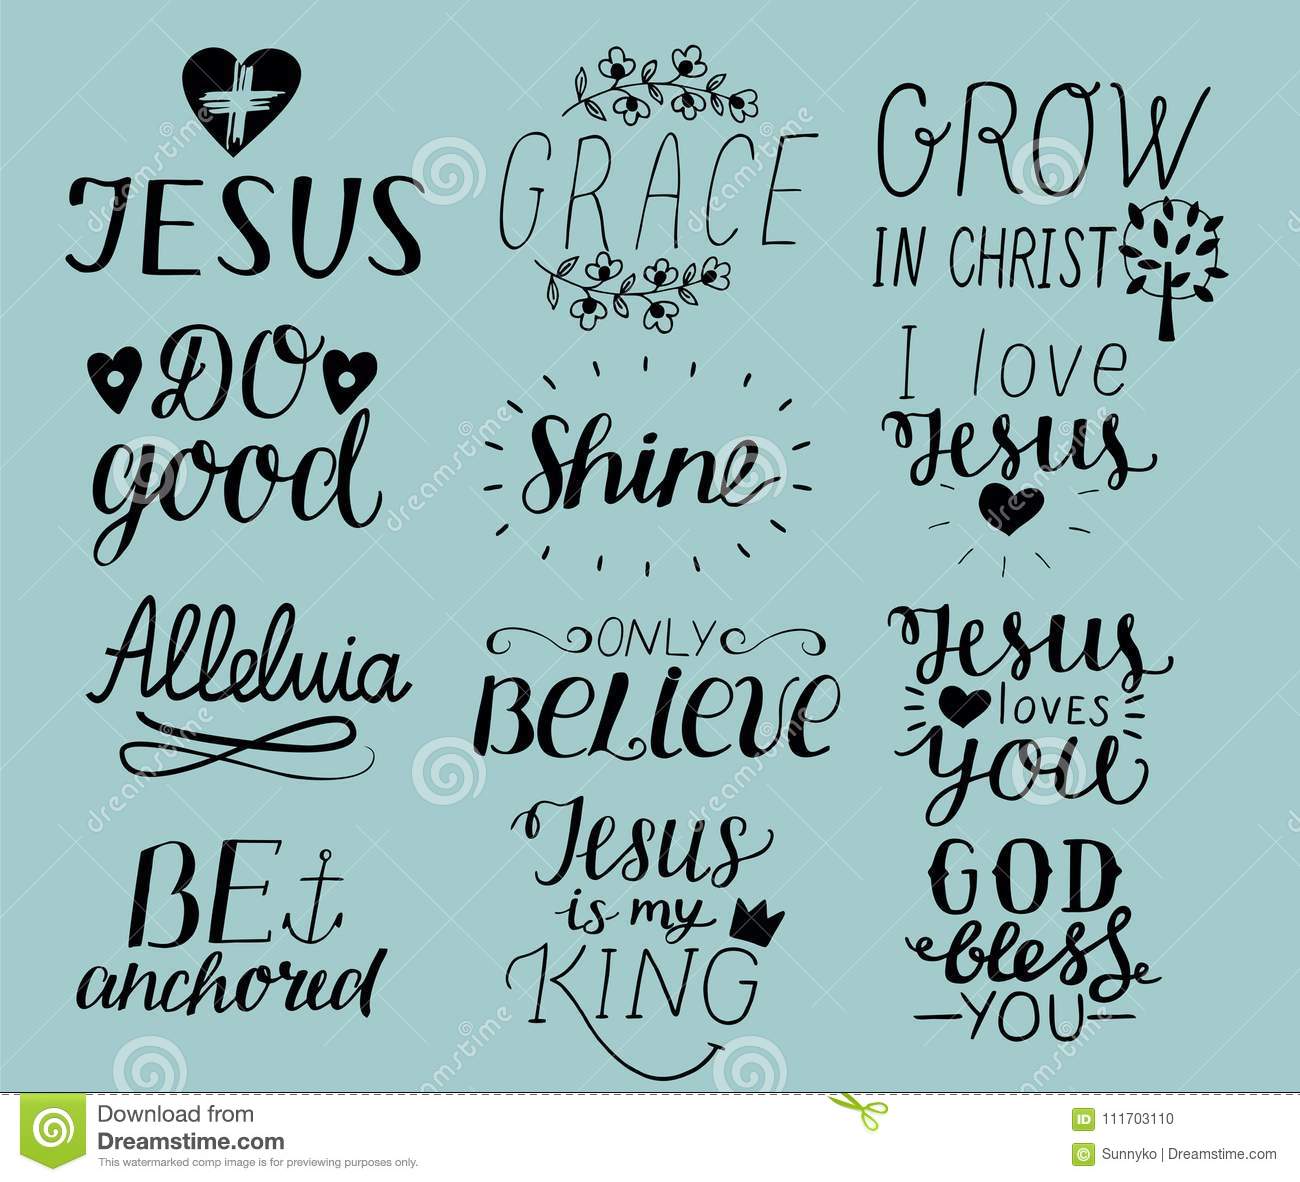 JESUS
GRACE
GROW
IN CHRIST
DO
good
Shine
I love
Jesus
Alleluia
ONLY
BELIEVE
Jesus
LOVES
you
BE
anchored
Jesus
is my
KING
GOD
bless
YOU
dreamstime
Download from
Dreamstime.com
This watermarked comp image is for previewing purposes only.
ID 111703110
© Sunnyko | Dreamstime.com